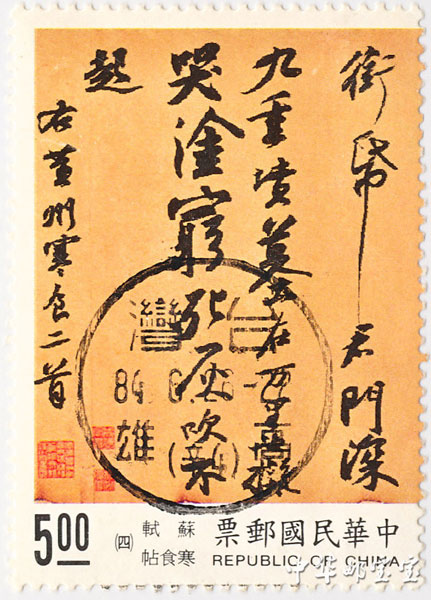 銜帋君門深
九重墳墓在万里也擬
哭塗窮死灰吹不
起
右黃州寒食二首
台灣
84
高雄
5.00
(四)
蘇軾
寒食帖
中華民國郵票
REPUBLIC OF CHINA